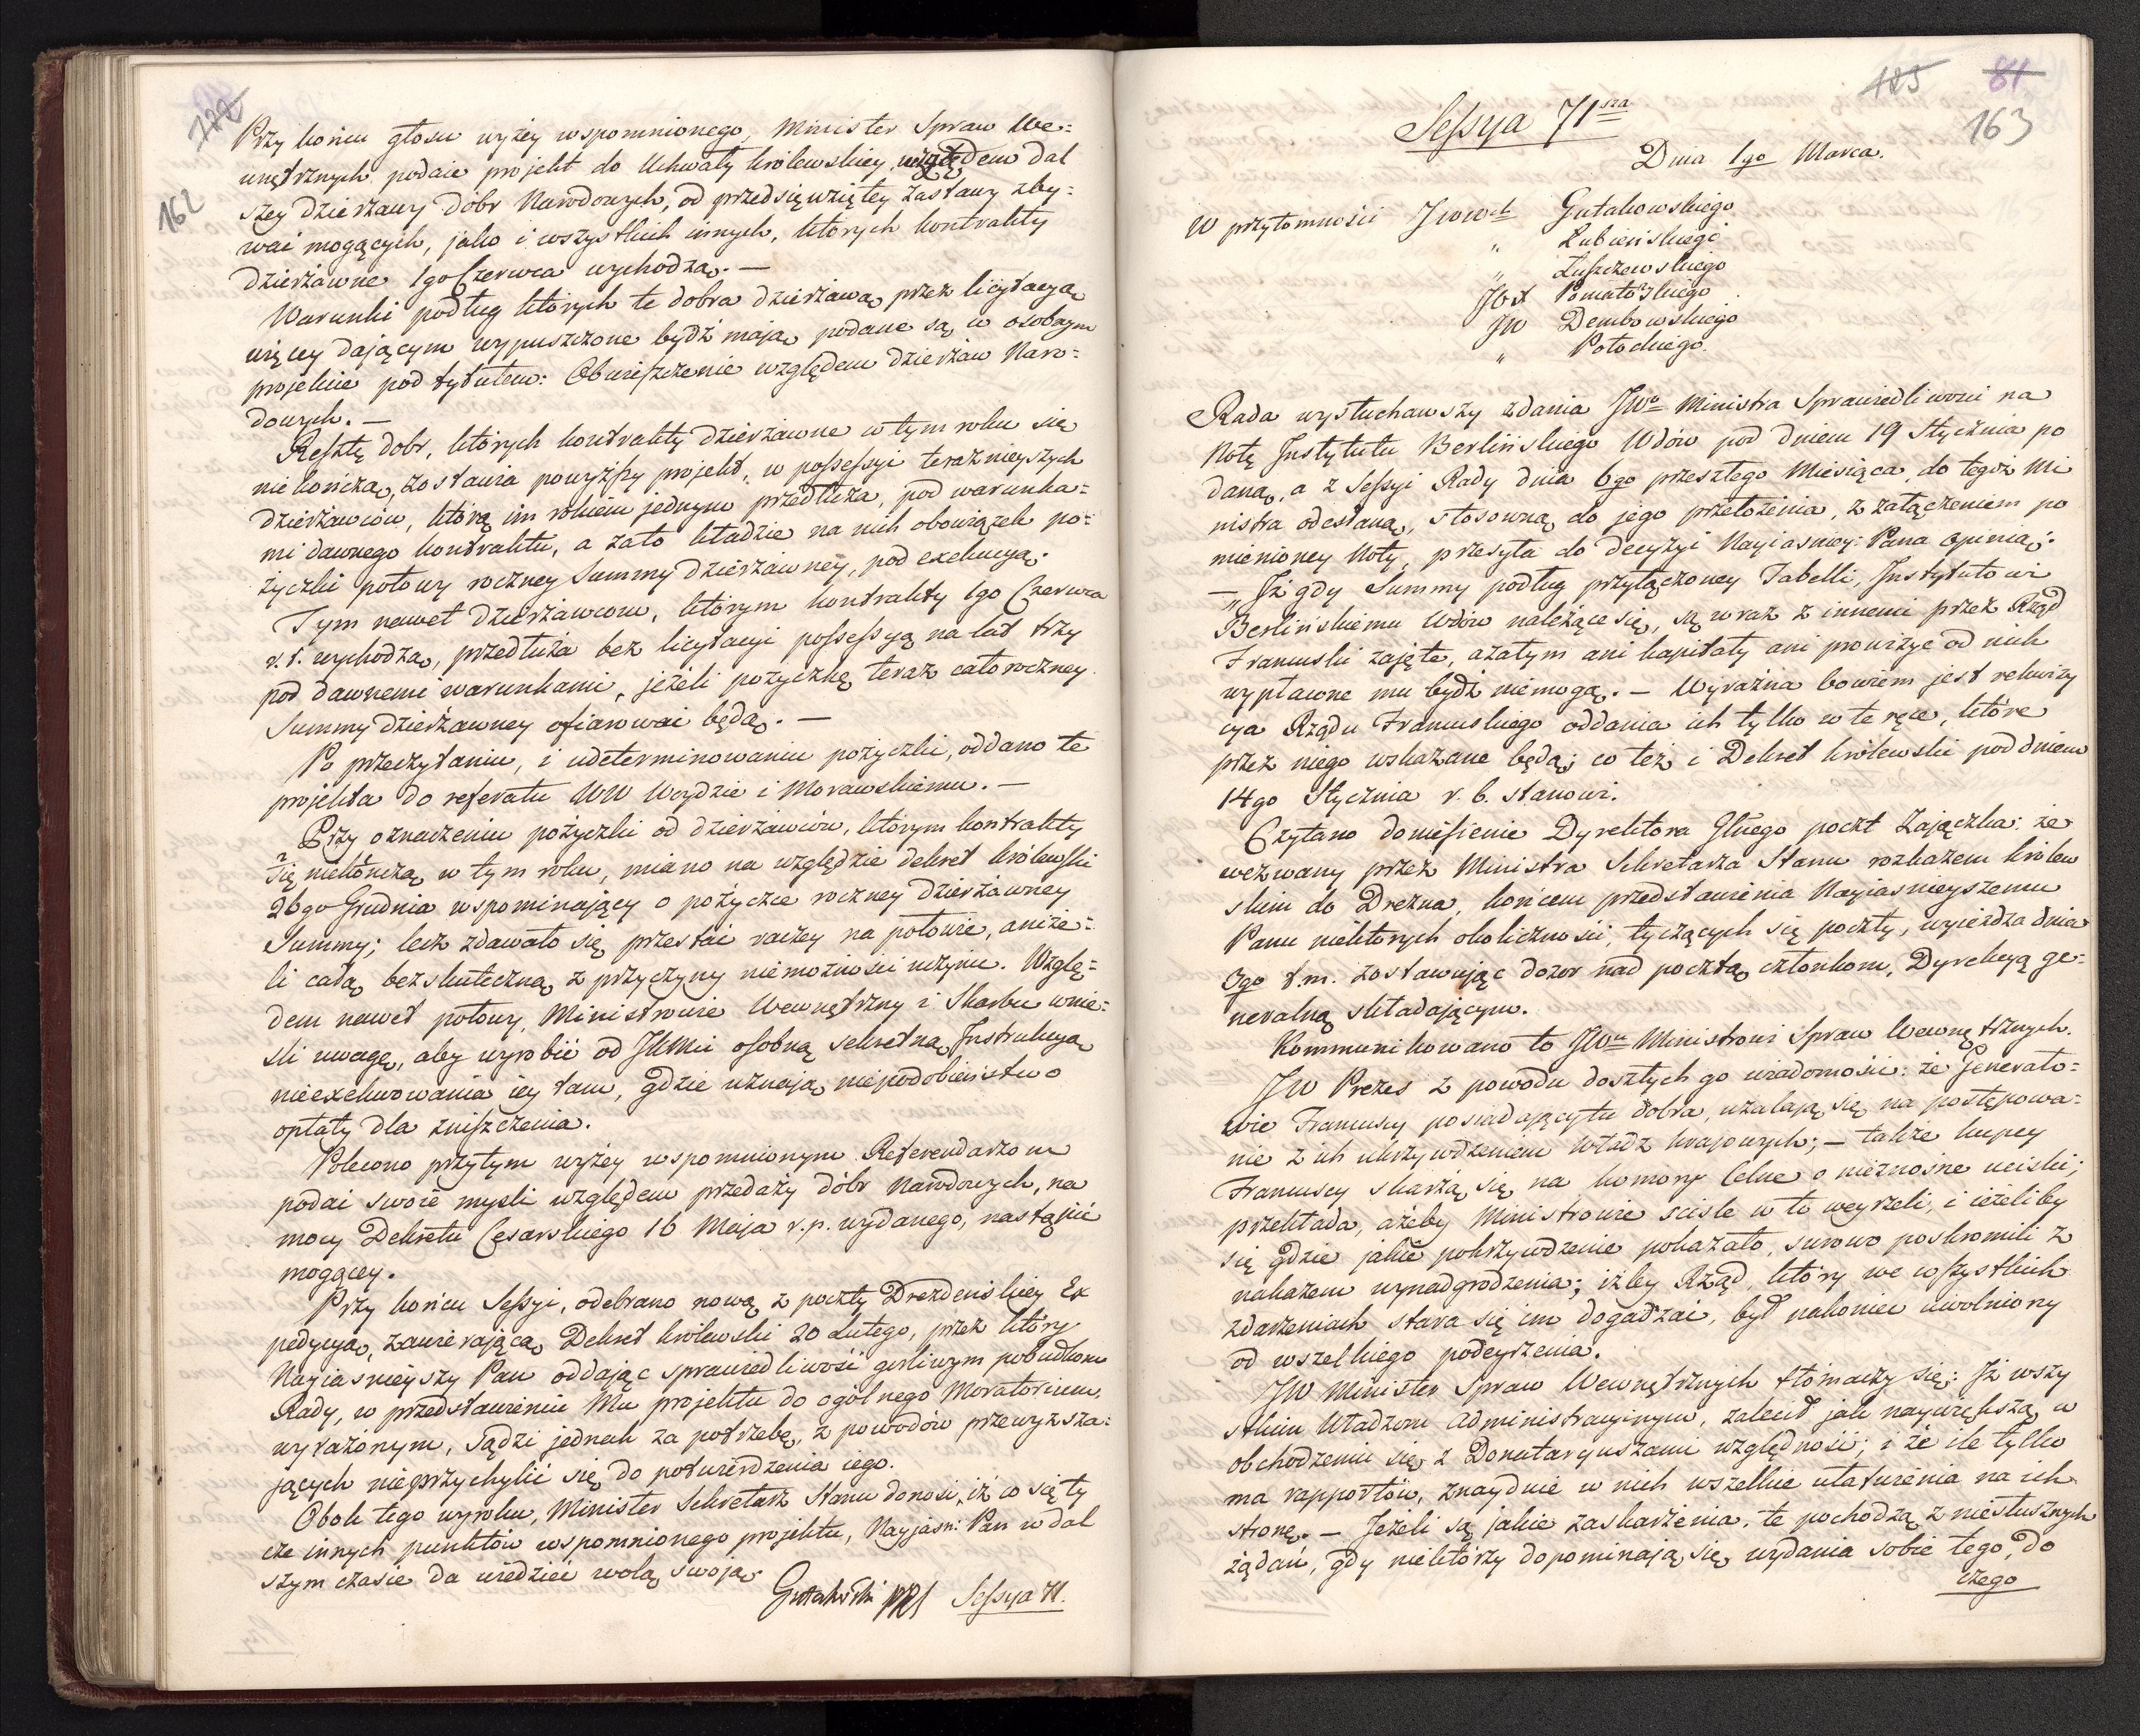 182
162
Przy końcu głosu wyżey wspomnionego, Minister Spraw We=
wnętrznych podaie projekt do Uchwały królewskiey, względem dal
szey dzierżawy dóbr Narodowych, od przedsięwziętey zastawy zby=
wać mogących, jako i wszystkich innych, których kontrakty
dzierżawne 1go Czerwca wychodzą. —
Warunki podług których te dobra dzierżawą przez licytacyą
więcey dającym wypuszczone bydź mają, podane są w osobnym
projekcie pod tytułem: Obwieszczenie względem dzierżaw Naro=
dowych. —
Resztę dobr, których kontrakty dzierżawne w tym roku się
nie kończą, zostawia powyższy projekt, w possessyi teraznieyszych
dzierżawców, którą im rokiem jednym przedłuża, pod warunka=
mi dawnego kontraktu, a zato kładzie na nich obowiązek po=
życzki połowy roczney Summy dzierżawney, pod exekucyą.
Tym nawet dzierżawcom, którym kontrakty 1go Czerwca
r. t. wychodzą, przedłuża bez licytacyi possessyą na lat trzy
pod dawnemi warunkami, jeżeli pożyczkę teraz całoroczney
Summy dzierżawney ofiarować będą. —
Po przeczytaniu, i udeterminowaniu pożyczki, oddano te
projekta do referatu WW Woydzie i Morawskiemu. —
Przy oznaczeniu pożyczki od dzierżawców, którym kontrakty
się niekończą w tym roku, miano na względzie dekret królewski
26go Grudnia wspominający o pożyczce roczney dzierżawney
Summy; lecz zdawało się przestać raczey na połowie, aniże=
li całą bezskuteczną z przyczyny niemożności uczynić. Wzglę=
dem nawet połowy, Ministrowie Wewnętrzny i Skarbu wnie=
śli uwagę, aby wyrobić od JKMci osobną sekretną Instrukcyą
nieexekwowania iey tam, gdzie uznają niepodobieństwo
opłaty dla zniszczenia.
Polecono przytym wyżey wspomnionym Referendarzom
podać swoie myśli względem przedaży dóbr Narodowych, na
mocy Dekretu Cesarskiego 16 Maja r. p. wydanego, nastąpić
mogącey.
Przy końcu Sessyi, odebrano nową z poczty Drezdeńskiey Ex
pedycyą, zawierającą Dekret królewski 20 Lutego, przez który
Nayiaśnieyszy Pan oddając sprawiedliwość gorliwym pobudkom
Rady, w przedstawieniu Mu projektu do ogólnego Moratorium,
wyrażonym, sądzi jednak za potrzebę, z powodów przewyższa=
jących nieprzychylić się do potwierdzenia iego.
Obok tego wyroku, Minister Sekretarz Stanu donosi, iż co się ty
cze innych punktów wspomnionego projektu, Nayjaśn: Pan w dal
szym czasie da wiedzieć wolą swoją.
Gutakowski PRS Sessya 71.
185 81
163
Sessya 71sza
Dnia 1go Marca.
W przytomności JWWch Gutakowskiego
" Łubieńskiego
" Łuszczewskiego
JOX Poniatowskiego
JW Dembowskiego
" Potockiego.
Rada wysłuchawszy zdania JWo Ministra Sprawiedliwości na
Notę Instytutu Berlińskiego Wdów pod dniem 19 Stycznia po
daną, a z Sessyi Rady dnia 6go przeszłego Miesiąca, do tegoż Mi
nistra odesłaną, stosowną do jego przełożenia, z załączeniem po
mienioney Noty, przesyła do decyzyi Nayiaśniey: Pana opinią.
— „ Iż gdy Summy podług przyłączoney Tabelli, Instytutowi
Berlińskiemu Wdów należące się, są wraz z innemi przez Rząd
Francuski zajęte, azatym ani kapitały ani prowizye od nich
wypłacone mu bydź niemogą. — Wyraźna bowiem jest rekwizy
cya Rządu Francuskiego oddania ich tylko w te ręce, które
przez niego wskazane będą; co też i Dekret królewski pod dniem
14go Stycznia r. b. stanowi.
Czytano doniesienie Dyrektora Głnego poczt Zajączka: że
wezwany przez Ministra Sekretarza Stanu rozkazem królew
skim do Drezna, końcem przedstawienia Nayiaśnieyszemu
Panu niektórych okoliczności, tyczących się poczty, wyieżdża dnia
3go t. m. zostawując dozor nad pocztą członkom, Dyrekcyą ge=
neralną składającym.
Kommunikowano to JWu Ministrowi Spraw Wewnętrznych.
JW Prezes z powodu doszłych go wiadomości: że Generało=
wie Francuscy posiadający tu dobra, użalają się na postępowa=
nie z ich ukrzywdzeniem Władz krajowych; — także kupcy
Francuscy skarżą się na komory Celne o nieznośne uciski;
przekłada, ażeby Ministrowie ściśle w to weyrzeli, i ieżeliby
się gdzie jakie pokrzywdzenie pokazało, surowo poskromili z
nakazem wynadgrodzenia; iżby Rząd, który we wszystkich
zdarzeniach stara się im dogadzać, był nakoniec uwolniony
od wszelkiego podeyrzenia.
JW Minister Spraw Wewnętrznych tłómaczy się: Iż wszy
stkim Władzom administracyinym, zalecił jak naywiększą w
obchodzeniu się z Donataryuszami względność; i że ile tylko
ma rapportów, znayduie w nich wszelkie ułatwienia na ich
stronę. — Jeżeli są jakie zaskarżenia, te pochodzą z niesłusznych
żądań, gdy niektórzy dopominają się wydania sobie tego, do
czego